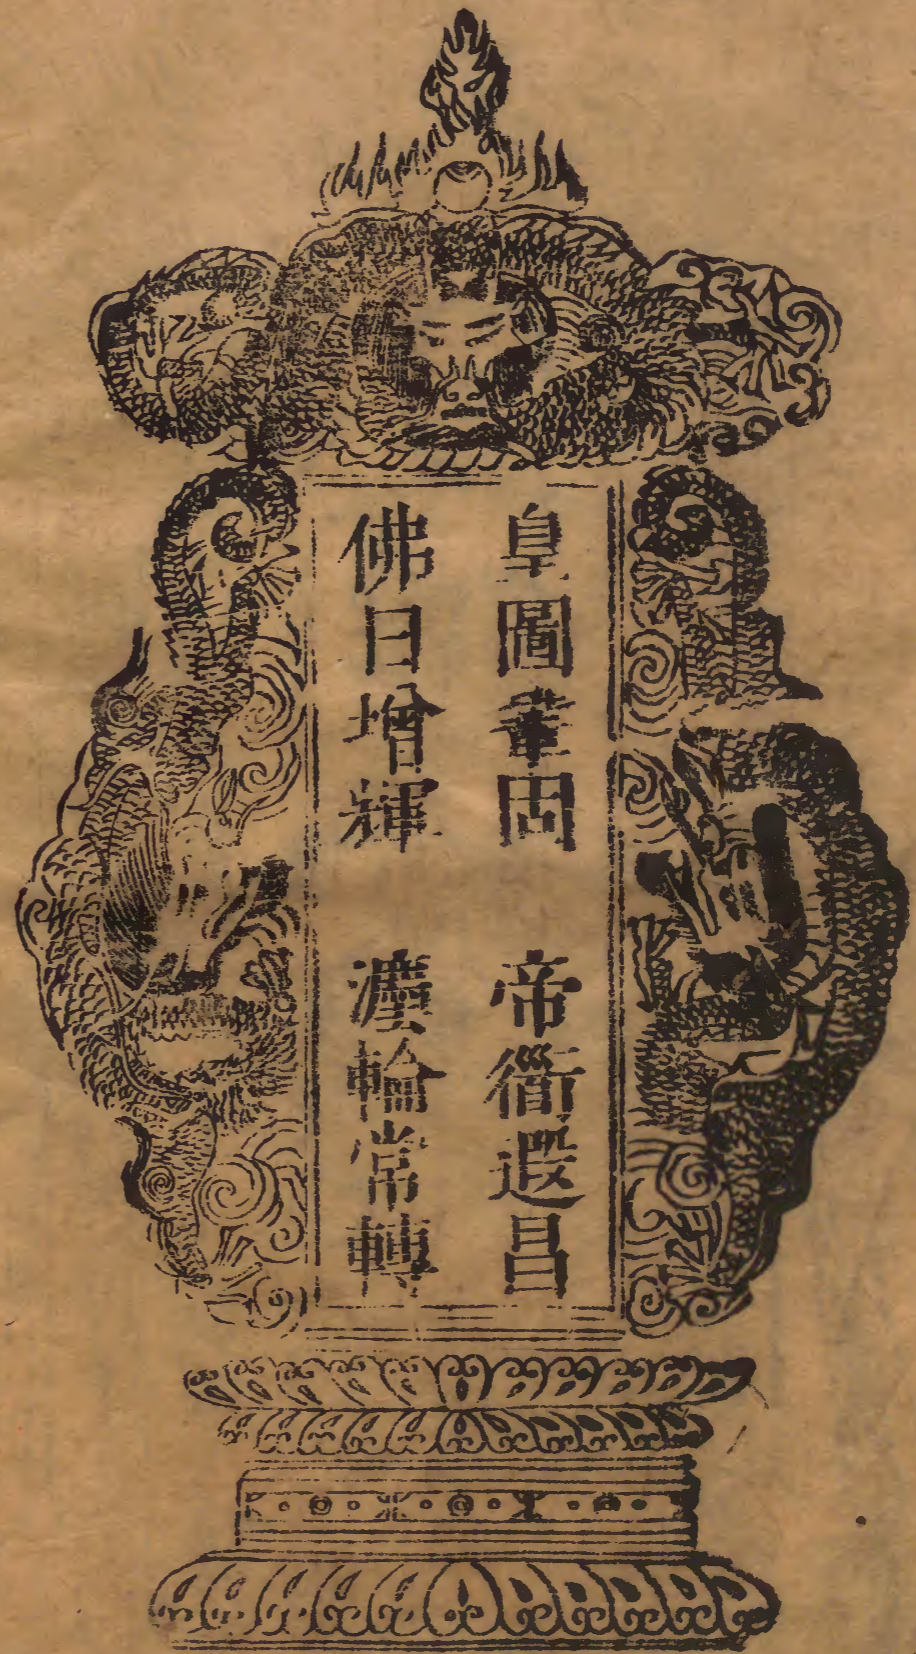 皇圖鞏固　帝衟遐昌
佛日增輝　灋輪常轉